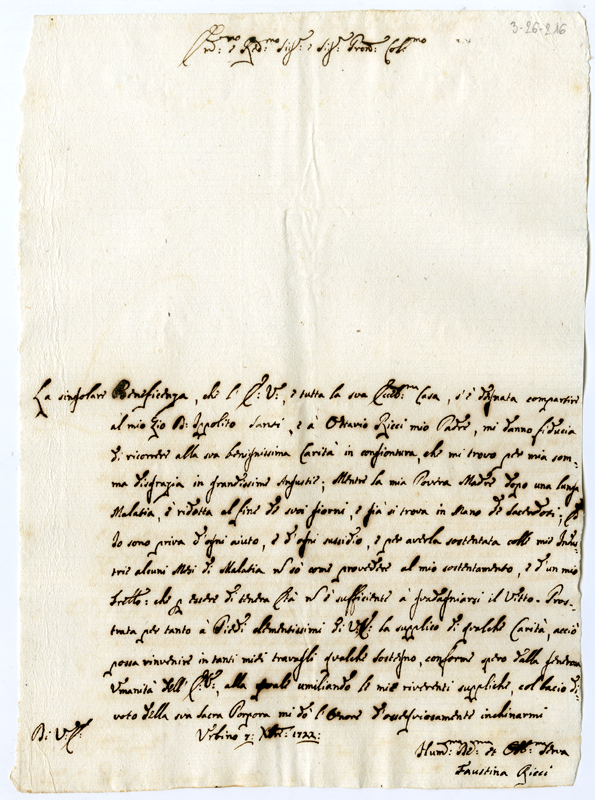 3-26-216
Em:mo e Rev:mo Sig:r e Sig:r Pron: Col:mo
La singolare Beneficenza, che l'E: V:, e tutta la sua Eccell:ma Casa, s'è degnata compartire
al mio Zio D: Ippolito, e à Ottavio Ricci mio Padre, mi danno fiducia
di ricorrere alla sua benignissima Carità in congiontura, che mi trovo per mia som-
ma disgrazia in grandissime Angustie; Mentre la mia Povera Madre dopo una lunga
Malatia, è ridotta al fine de suoi giorni, e già si trova in Mano de Sacerdoti; Ed
Io sono priva d'ogni aiuto, e d'ogni sussidio, e per averla sostentata colle mie Indu-
strie alcuni Mesi di Malatia nō sò come provedere al mio sostentamento, e d'un mio
Fretto: che p essere di tenera Età nō è sufficiente à guadagniarsi il Vitto. Pros-
trata per tanto à Piedi clementissimi di V: E: la supplico di qualche Carità, acciò
possa rinvenire in tanti miei travagli qualche sostegno, conforme spero dalla generosa
Umanità dell'E: V:, alla quale umiliando le mie riverenti suppliche, col bacio di-
voto della sua Sacra Porpora mi dò l'Onore d'ossequiosamente inchinarmi
Di V: E:
Urbino 7: Xbre: 1722:
Hum:ma Dev:ma et Obb:ma Serva
Faustina Ricci